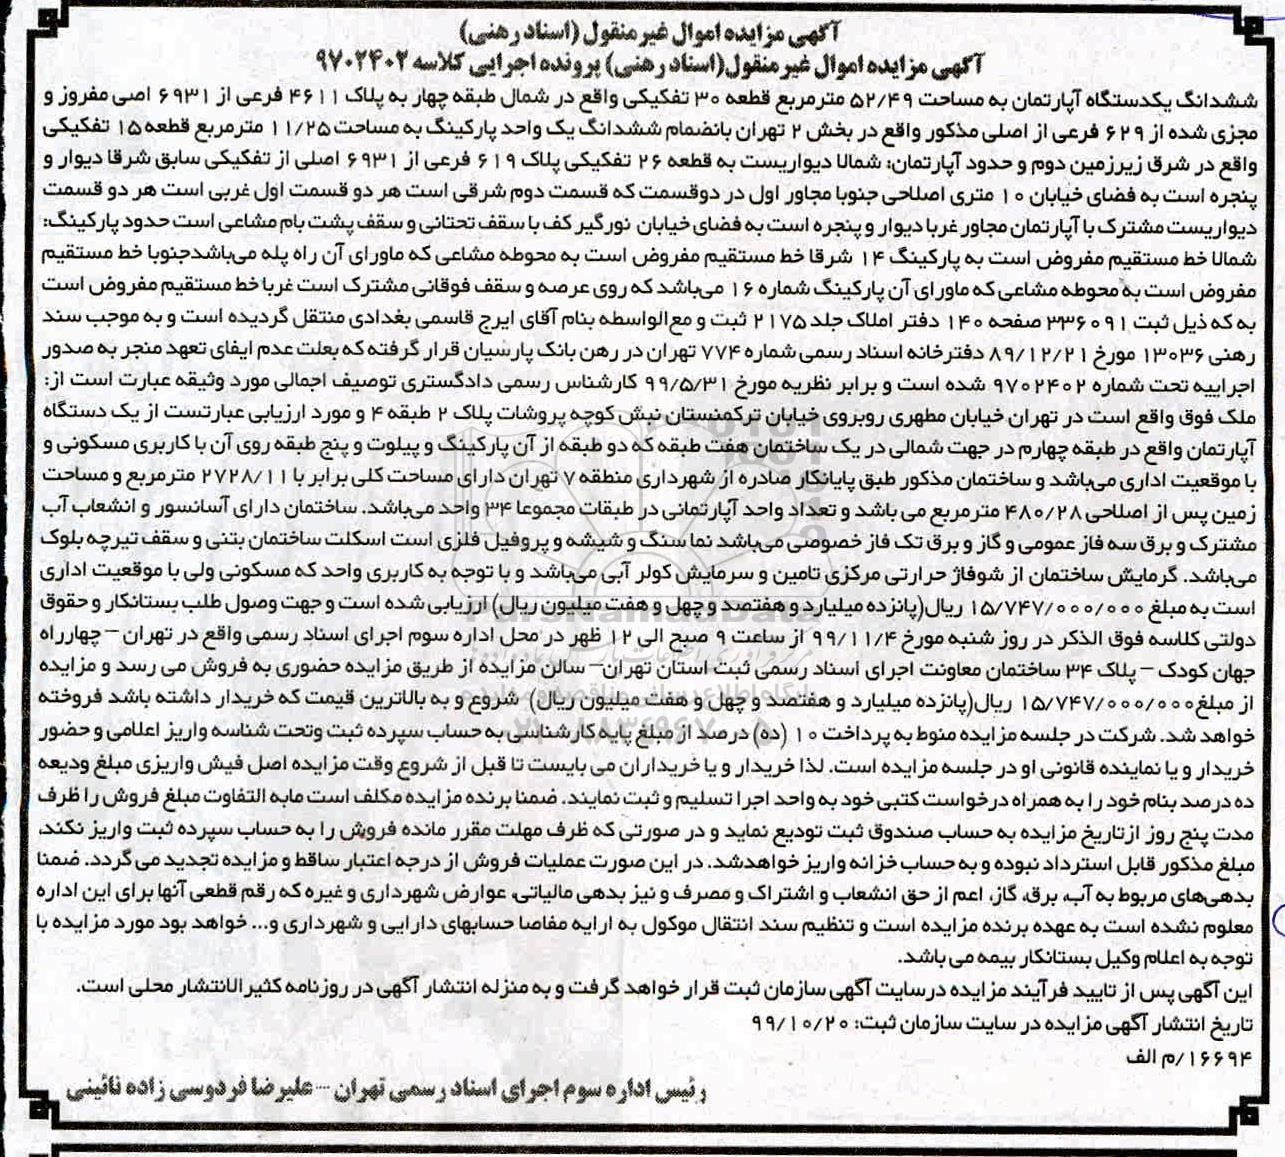 آگهی مزایده اموال غیر منقول (اسناد رهنی)
آگهی مزایده اموال غیر منقول(اسناد رهنی) پرونده اجرایی کلاسه ۹۷۰۲۴۰۲
ششدانگ یکدستگاه آپارتمان به مساحت ۵۲/۴۹ مترمربع قطعه ۳۰ تفکیکی واقع در شمال طبقه چهار به پلاک ۴۶۱۱ فرعی از ۶۹۳۱ اصی مفروز و
مجزی شده از ۶۲۹ فرعی از اصلی مذکور واقع در بخش ۲ تهران بانضمام ششدانگ یک واحد پارکینگ به مساحت ۱۱/۲۵ مترمربع قطعه ۱۵ تفکیکی
واقع در شرق زیرزمین دوم و حدود آپارتمان: شمالا دیواریست به قطعه ۲۶ تفکیکی پلاک ۶۱۹ فرعی از ۶۹۳۱ اصلی از تفکیکی سابق شرقا دیوار و
پنجره است به فضای خیابان ۱۰ متری اصلاحی جنوبا مجاور اول در دوقسمت که قسمت دوم شرقی است هر دو قسمت اول غربی است هر دو قسمت
دیواریست مشترک با آپارتمان مجاور غربا دیوار و پنجره است به فضای خیابان نورگیر کف با سقف تحتانی و سقف پشت بام مشاعی است حدود پارکینگ:
شمالا خط مستقیم مفروض است به پارکینگ ۱۴ شرقا خط مستقیم مفروض است به محوطه مشاعی که ماورای آن راه پله می‌باشدجنوبا خط مستقیم
مفروض است به محوطه مشاعی که ماورای آن پارکینگ شماره ۱۶ می‌باشد که روی عرصه و سقف فوقانی مشترک است غربا خط مستقیم مفروض است
به که ذیل ثبت ۳۳۶۰۹۱ صفحه ۱۴۰ دفتر املاک جلد ۲۱۷۵ ثبت و مع‌الواسطه بنام آقای ایرج قاسمی بغدادی منتقل گردیده است و به موجب سند
رهنی ۱۳۰۳۶ مورخ ۸۹/۱۲/۲۱ دفترخانه اسناد رسمی شماره ۷۷۴ تهران در رهن بانک پارسیان قرار گرفته که بعلت عدم ایفای تعهد منجر به صدور
اجراییه تحت شماره ۹۷۰۲۴۰۲ شده است و برابر نظریه مورخ ۹۹/۵/۳۱ کارشناس رسمی دادگستری توصیف اجمالی مورد وثیقه عبارت است از:
ملک فوق واقع است در تهران خیابان مطهری روبروی خیابان ترکمنستان نبش کوچه پروشات پلاک ۲ طبقه ۴ و مورد ارزیابی عبارتست از یک دستگاه
آپارتمان واقع در طبقه چهارم در جهت شمالی در یک ساختمان هفت طبقه که دو طبقه از آن پارکینگ و پیلوت و پنج طبقه روی آن با کاربری مسکونی و
با موقعیت اداری می‌باشد و ساختمان مذکور طبق پایانکار صادره از شهرداری منطقه ۷ تهران دارای مساحت کلی برابر با ۲۷۲۸/۱۱ مترمربع و مساحت
زمین پس از اصلاحی ۴۸۰/۲۸ مترمربع می باشد و تعداد واحد آپارتمانی در طبقات مجموعا ۳۴ واحد می‌باشد. ساختمان دارای آسانسور و انشعاب آب
مشترک و برق سه فاز عمومی و گاز و برق تک فاز خصوصی می‌باشد نما سنگ و شیشه و پروفیل فلزی است اسکلت ساختمان بتنی و سقف تیرچه بلوک
می‌باشد. گرمایش ساختمان از شوفاژ حرارتی مرکزی تامین و سرمایش کولر آبی می‌باشد و با توجه به کاربری واحد که مسکونی ولی با موقعیت اداری
است به مبلغ ۱۵/۷۴۷/۰۰۰/۰۰۰ ریال(پانزده میلیارد و هفتصد و چهل و هفت میلیون ریال) ارزیابی شده است و جهت وصول طلب بستانکار و حقوق
دولتی کلاسه فوق الذکر در روز شنبه مورخ ۹۹/۱۱/۴ از ساعت ۹ صبح الی ۱۲ ظهر در محل اداره سوم اجرای اسناد رسمی واقع در تهران – چهارراه
جهان کودک – پلاک ۳۴ ساختمان معاونت اجرای اسناد رسمی ثبت استان تهران– سالن مزایده از طریق مزایده حضوری به فروش می رسد و مزایده
از مبلغ ۱۵/۷۴۷/۰۰۰/۰۰۰ ریال(پانزده میلیارد و هفتصد و چهل و هفت میلیون ریال) شروع و به بالاترین قیمت که خریدار داشته باشد فروخته
خواهد شد. شرکت در جلسه مزایده منوط به پرداخت ۱۰ (ده) درصد از مبلغ پایه کارشناسی به حساب سپرده ثبت وتحت شناسه واریز اعلامی و حضور
خریدار و یا نماینده قانونی او در جلسه مزایده است. لذا خریدار و یا خریداران می بایست تا قبل از شروع وقت مزایده اصل فیش واریزی مبلغ ودیعه
ده درصد بنام خود را به همراه درخواست کتبی خود به واحد اجرا تسلیم و ثبت نمایند. ضمنا برنده مزایده مکلف است مابه التفاوت مبلغ فروش را ظرف
مدت پنج روز ازتاریخ مزایده به حساب صندوق ثبت تودیع نماید و در صورتی که ظرف مهلت مقرر مانده فروش را به حساب سپرده ثبت واریز نکند،
مبلغ مذکور قابل استرداد نبوده و به حساب خزانه واریز خواهدشد. در این صورت عملیات فروش از درجه اعتبار ساقط و مزایده تجدید می گردد. ضمنا
بدهی‌های مربوط به آب، برق، گاز، اعم از حق انشعاب و اشتراک و مصرف و نیز بدهی مالیاتی، عوارض شهرداری و غیره که رقم قطعی آنها برای این اداره
معلوم نشده است به عهده برنده مزایده است و تنظیم سند انتقال موکول به ارایه مفاصا حسابهای دارایی و شهرداری و... خواهد بود مورد مزایده با
توجه به اعلام وکیل بستانکار بیمه می باشد.
این آگهی پس از تایید فرآیند مزایده درسایت آگهی سازمان ثبت قرار خواهد گرفت و به منزله انتشار آگهی در روزنامه کثیرالانتشار محلی است.
تاریخ انتشار آگهی مزایده در سایت سازمان ثبت: ۹۹/۱۰/۲۰
۱۶۶۹۴/م الف
رئیس اداره سوم اجرای اسناد رسمی تهران – علیرضا فردوسی زاده نائینی